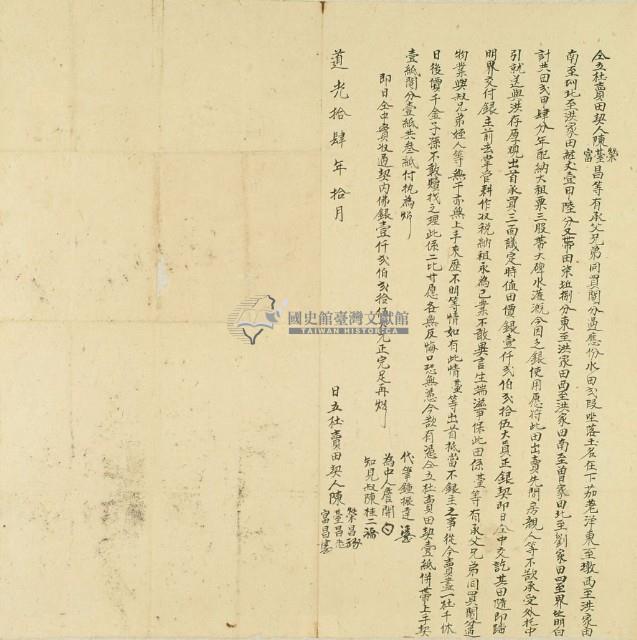 仝立杜賣田契人陳榮富基昌等有承父兄弟同買鬮分過應份水田弍段坐落土名在下茄荖洋東至墩西至洪家田
南至圳北至洪家田經丈壹甲陸分又帶田柒坵捌分東至洪家田西至洪家田南至曾家田北至劉家田四至界址明白
計共田弍甲肆分年配納大租粟三股帶大碑水流溉今因乏銀使用愿將此田出賣先問房親人等不欲承受外托中
引就送與洪存厚觀出首承買三面議定時值田價銀壹仟弍佰弍拾伍大員正銀契即日仝中交訖其田隨即踏
明界交付銀主前去掌管耕作收稅納租永為己業不敢異言生端滋事保此田係基等有承父兄弟同買鬮分過
物業與叔兄弟姪人等無干亦無上手來歷不明等情如有此情基等出首抵當不銀主之事從今賣盡一杜千休
日後價千金子孫不敢贖找之理此係二比甘愿各無反悔口恐無憑今欲有憑仝立杜賣田契壹紙併帶上手契
壹紙鬮分壹紙共叁紙付執為炤
即日仝中實收過契內佛銀壹仟弍佰弍拾伍元正完足再炤
代筆鍾振
為中人詹開
知見叔陳桂二
道光拾肆年拾月
日立杜賣田契人陳榮昌基昌富昌
國史館臺灣文獻館
TAIWAN HISTORICA